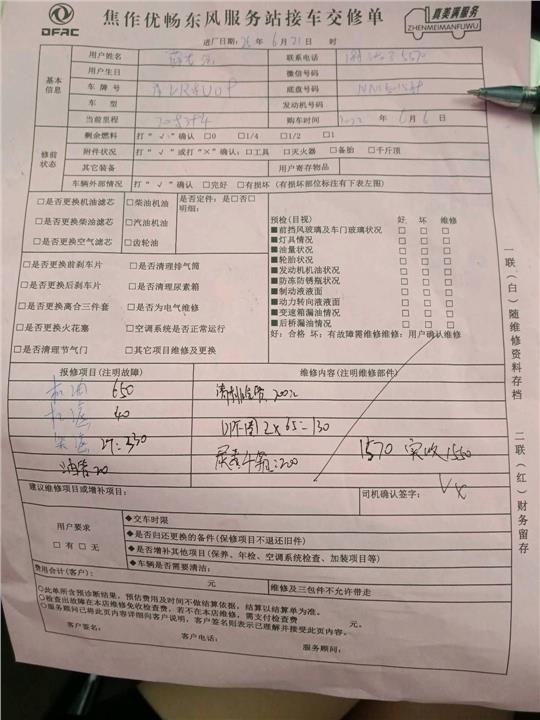 DFAC
焦作优畅东风服务站接车交修单
真美满服务
ZHENMEIMANFUWU
进厂日期：25年6月21日 时
基本信息
用户姓名
联系电话
用户生日
微信号码
车牌号
底盘号码
车型
发动机号码
当前里程
购车时间 2022年6月6日
修前状态
剩余燃料 打“√”确认 □0 □1/4 □1/2 □1
附件状况 打“√”或打“×”确认：□工具 □灭火器 □备胎 □千斤顶
其它装备
用户寄存物品
车辆外部情况 打“√”确认 □完好 □有损坏（有损坏部位标注有下表左图）
□是否更换机油滤芯 □柴油机油 是否定件：是□否□
明细：
□是否更换柴油滤芯 □汽油机油
□是否更换空气滤芯 □齿轮油
□是否更换前刹车片 □是否清理排气筒
□是否更换后刹车片 □是否清理尿素箱
□是否更换离合三件套 □是否为电气维修
□是否更换火花塞 □空调系统是否正常运行
□是否清理节气门 □其它项目维修及更换
预检(目视) 好 坏 维修
■前挡风玻璃及车门玻璃状况 □ □ □
■灯具情况 □ □ □
■油量状况 □ □ □
■轮胎状况 □ □ □
■发动机机油状况 □ □ □
■防冻防锈瓶状况 □ □ □
■制动液液面 □ □ □
■动力转向液液面 □ □ □
■变速箱漏油情况 □ □ □
■后桥漏油情况 □ □ □
好：合格 坏：有故障需维修维修：用户确认维修
报修项目(注明故障)
维修内容(注明维修部件)
机油 650
机滤 40
200
DPF 2×65=130
330
20
200
1570 实收1550
建议维修项目或增补项目：
司机确认签字：
用户要求
□有 □无
◆交车时限
◆是否归还更换的备件(保修项目不退还旧件)
◆是否增补其他项目(保养、年检、空调系统检查、加装项目等)
◆车辆是否需要清洁：
费用合计(客户)： 元
维修及三包件不允许带走
○此单所含预诊断结果，预估费用及时间不做结算依据，结算以结算单为准。
○检查出故障在本店维修免收检查费，若不在本店维修，需支付检查费 元。
○服务顾问已将此页内容详细向客户说明，客户签名则表示已理解并接受此页内容。
客户签名： 客户电话： 服务顾问：
一联（白）随维修资料存档
二联（红）财务留存